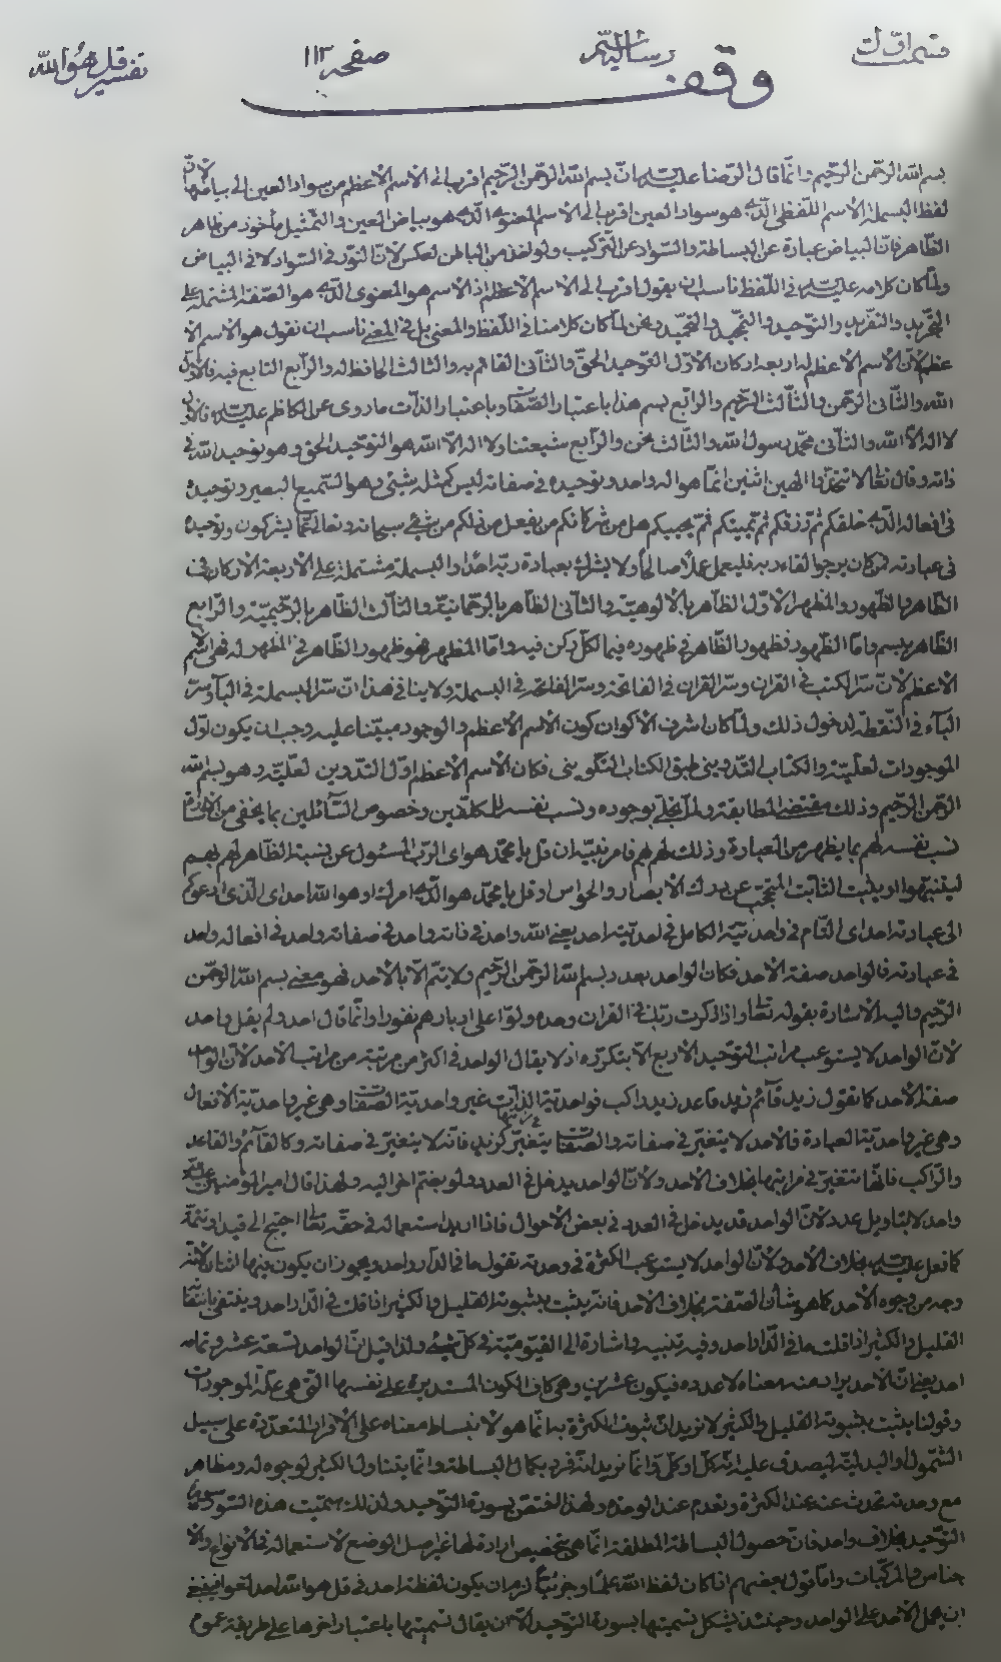 قسمت اول
رسالة
صفحه ١١٢
تفسير قل هو الله
وقف
بسم الله الرحمن الرحيم وانما قال الرضا عليه السلم ان بسم الله الرحمن الرحيم اقرب الى الاسم الاعظم من سواد العين الى بياضها لان
لفظ البسملة الاسم اللفظى الذى هو سواد العين اقرب الى الاسم المعنوى الذى هو بياض العين والتمثيل مأخوذ من ظاهر
الظاهر فان البياض عبارة عن البساطة والسواد عن التركيب ولو اخذ من الباطن لعكس لان النور فى السواد لا فى البياض
ولما كان كلامه عليه السلم فى اللفظ ناسب ان يقول اقرب الى الاسم الاعظم اذ الاسم هو المعنوى الذى هو الصفة المشتملة على
التجريد والتفريد والتوحيد والتمجيد ونحن لما كان كلامنا فى اللفظ والمعنى بل فى المعنى ناسب ان نقول هو الاسم الا
عظم لان الاسم الاعظم له اربعة اركان الاول التوحيد الحق والثانى القائم به والثالث الحافظ له والرابع التابع فيه فالاول
الله والثانى الرحمن والثالث الرحيم والرابع بسم هذا باعتبار الصفات وباعتبار الذات ما روى عن الكاظم عليه السلم فالاول
لا اله الا الله والثانى محمد رسول الله والثالث نحن والرابع شيعتنا ولا اله الا الله هو التوحيد الحق وهو توحيد الله فى
ذاته وقال تعالى لا تتخذوا الهين اثنين انما هو اله واحد وتوحيده فى صفاته ليس كمثله شئ وهو السميع البصير وتوحيده
فى افعاله الذى خلقكم ثم رزقكم ثم يميتكم ثم يحييكم هل من شركائكم من يفعل من ذلكم من شئ سبحانه وتعالى عما يشركون وتوحيده
فى عبادته فمن كان يرجوا لقاء ربه فليعمل عملا صالحا ولا يشرك بعبادة ربه احدا والبسملة مشتملة على الاربعة الاركان فى
الظاهر والظهور والمظهر الاول الظاهر بالالوهية والثانى الظاهر بالرحمانية والثالث الظاهر بالرحيمية والرابع
الظاهر ببسم واما الظهور فظهور الظاهر فى ظهوره فيما لكل ركن فيه واما المظهر فهو ظهور الظاهر فى المظهر له فهى اسم
الاعظم لان سر الكتب فى القران وسر القران فى الفاتحة وسر الفاتحة فى البسملة ولا ينافى هذا ان سر البسملة فى الباء وسر
الباء فى النقطة لدخول ذلك ولما كان اشرف الاكوان كون الاسم الاعظم والوجود مبتنا عليه وجب ان يكون اول
الموجودات لعليته والكتاب التدوينى طبق الكتاب التكوينى فكان الاسم الاعظم اول التدوين لعليته وهو بسم الله
الرحمن الرحيم وذلك مقتضى المطابقة ولما تجلى بوجوده ونسب نفسه للمكلفين وخصوص السائلين بما يخفى من
نسب نفسه لهم بما يظهر من العبادة وذلك لهم بهم فامر نبيه ان قل يا محمد هو اى الرب المسئول عن نسبة الظاهر لهم بهم
ليتنبهوا او يثبت الثابت المحتجب عن درك الابصار والحواس او قل يا محمد هو الذى امرك او هو الله احد اى الذى ادعوكم
الى عبادته احد اى التام فى واحديته الكامل فى احديته احد يعنى الله واحد فى ذاته واحد فى صفاته واحد فى افعاله واحد
فى عبادته فالواحد صفة الاحد فكان الواحد بعد وبسم الله الرحمن الرحيم ولا يتم الا بالاحد فهو معنى بسم الله الرحمن
الرحيم واليه الاشارة بقوله تعالى واذا ذكرت ربك فى القران وحده ولوا على ادبارهم نفورا وانما قال احد ولم يقل واحد
لان الواحد لا يستوعب مراتب التوحيد الاربع الا بتكرره اذ لا يقال الواحد فى اكثر من مرتبة من مراتب الاحد لان الواحد
صفة الاحد كما تقول زيد قائم زيد قاعد زيد راكب فواحدية الذات غير واحدية الصفات وهى غير واحدية الافعال
وهى غير واحدية العبادة فالاحد لا يتغير فى صفاته والصفات يتغير فى مراتبها كزيد فانه لا يتغير فى صفاته وكالقائم والقاعد
والراكب فانها تتغير فى مراتبها بخلاف الاحد ولان الواحد يدخل فى العدد ولو بضم اخر اليه ولهذا قال امير المؤمنين عليه السلم
واحد لا بتاويل عدد لان الواحد قد يدخل فى العدد فى بعض الاحوال فاذا اريد استعماله فى حقه تعالى احتيج الى قيد او تتمة
كما فعل عليه السلم بخلاف الاحد ولان الواحد لا يستوعب الكثرة فى وحدته تقول ما فى الدار واحد ويجوز ان يكون فيها اثنان لانه
وجه من وجوه الاحد كما هو شأن الصفة بخلاف الاحد فانه يثبت بثبوته القليل والكثير اذا قلت فى الدار احد وينتفى بانتفائه
القليل والكثير اذا قلت ما فى الدار احد وفيه تنبيه واشارة الى القيومية فى كل شئ ولذا قيل ان الواحد تسعة عشر وتمامه
احد يعنى ان الاحد يراد منه معناه لا عدده فيكون عشرين وهى كاف الكون المستديرة على نفسها التى هى علة الموجودات
وقولنا يثبت بثبوته القليل والكثير لا نريد ان ثبوت الكثرة به انما هو لانبساط معناه على الافراد المتعددة على سبيل
الشمول او البدلية ليصدق عليه انه كل او كلى وانما نريد انه فرد بكمال البساطة وانما يتناول الكثير لوجوه له ومظاهر
مع وحدته تحدث عنه عند الكثرة وتعدم عند الوحدة ولهذا اختص بسورة التوحيد ولذلك سميت هذه السورة سورة
التوحيد بخلاف واحد فان حصول البساطة المطلقة انما هى بتخصيص ارادة لها غير اصل الوضع لاستعماله فى الانواع والا
جناس والمركبات واما قول بعضهم اذا كان لفظ الله علما وجزئيا لزم ان يكون لفظة احد فى قل هو الله احد لغوا فينبغى
ان يحمل الاحد على الواحد وحينئذ يشكل تسميتها بسورة التوحيد الا ان يقال تسميتها باعتبار اخرها على طريقة عموم